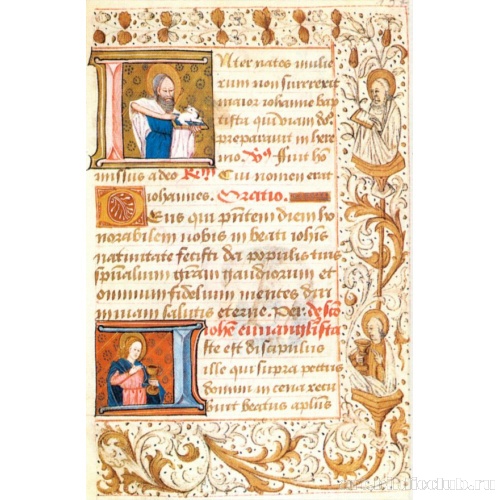 Inter natos mulie
rum non surrexit
maior iohanne bap
tista qui viam dn̄o
preparavit in here
mo. Vs. Fuit hō
missus a deo Resp̄. Cui nomen erat
iohannes. Oratio.
Deus qui pn̄tem diem ho
norabilem nobis in beati iohīs
nativitate fecisti da populis tuis
sp̄ualium grām gaudiorum et
omnium fidelium mentes dirī
in viam salutis eterne. Per. de scō
iohē evvangelista
Iste est discipulus
ille qui supra pectus
domini in cena recu
buit beatus aplūs